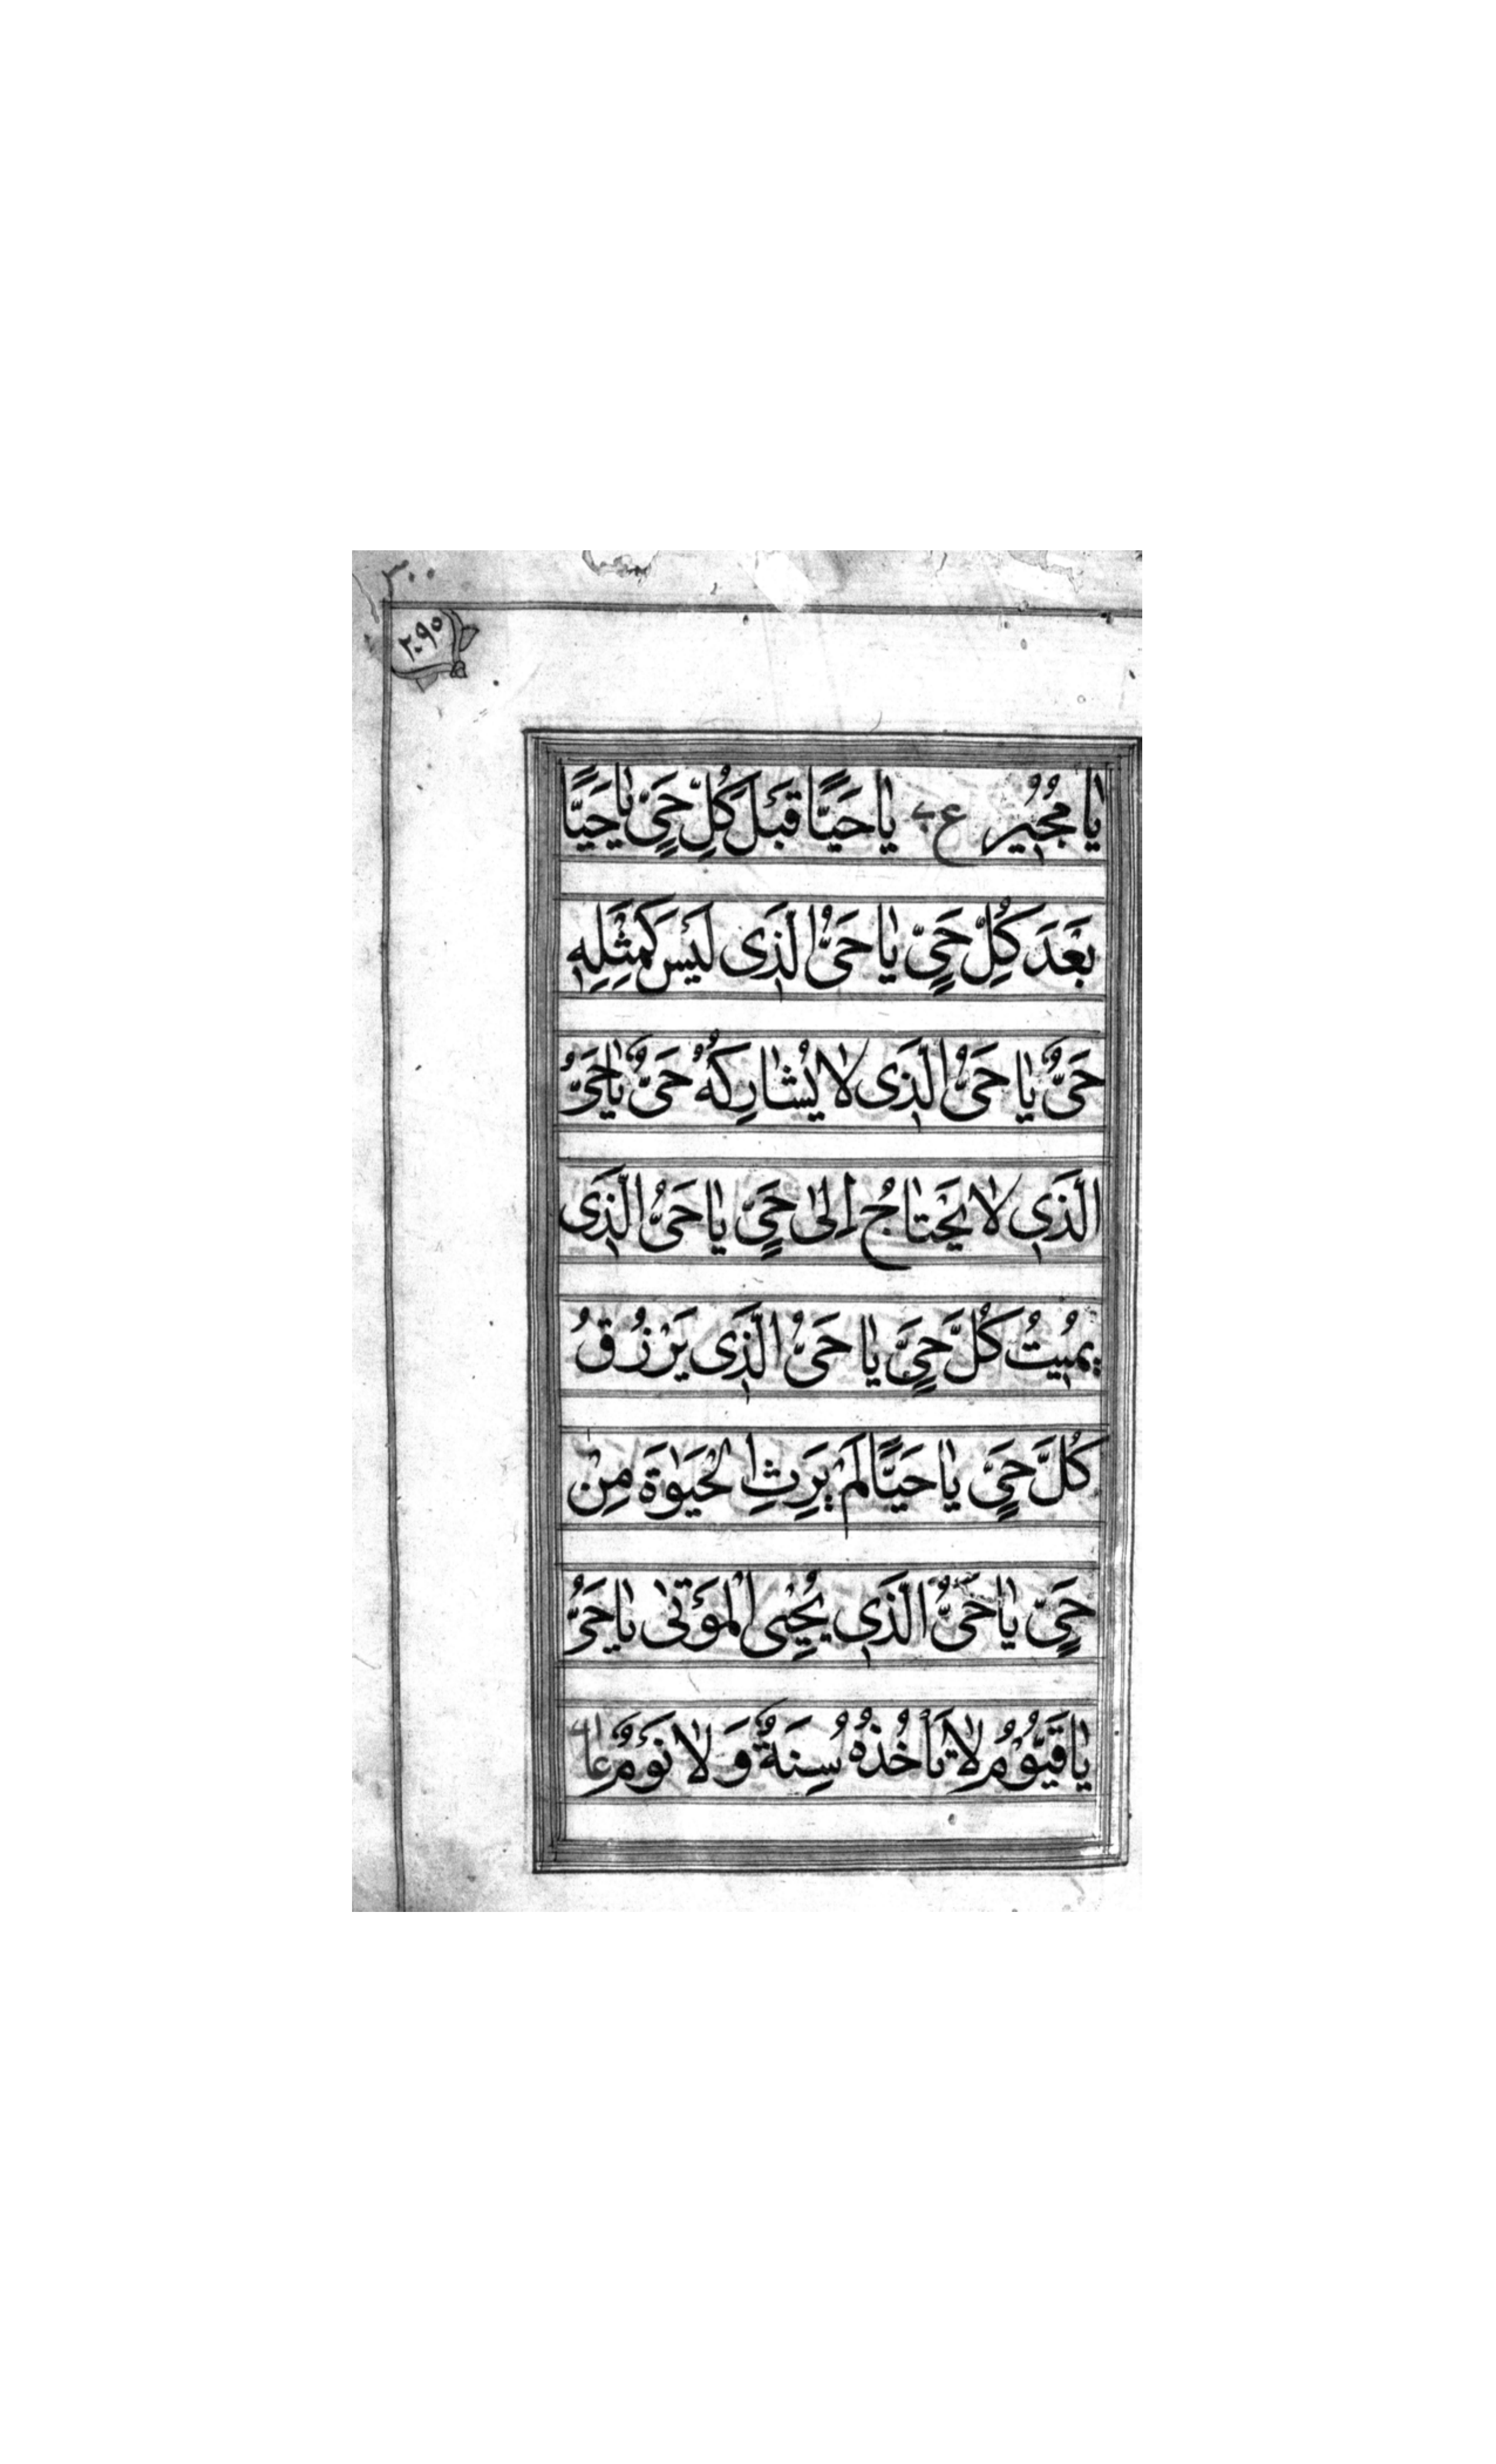 ٢٠٠
٢٠٩٥
يٰا مُجٖيرُ ع يٰا حَيًّا قَبْلَ كُلِّ حَيٍّ يٰا حَيًّا
بَعْدَ كُلِّ حَيٍّ يٰا حَيُّ الَّذٖى لَيْسَ كَمِثْلِهٖ
حَيٌّ يٰا حَيُّ الَّذٖى لٰا يُشٰارِكُهُ حَيٌّ يٰا حَيُّ
الَّذٖي لٰا يَحْتٰاجُ اِلىٰ حَيٍّ يٰا حَيُّ الَّذٖى
يُمٖيتُ كُلَّ حَيٍّ يٰا حَيُّ الَّذٖى يَرْزُقُ
كُلَّ حَيٍّ يٰا حَيًّا لَمْ يَرِثِ الْحَيٰوةَ مِنْ
حَيٍّ يٰا حَيُّ الَّذٖي يُحْيِى الْمَوْتىٰ يٰا حَيُّ
يٰا قَيُّوْمُ لٰا تَأْخُذُهُ سِنَةٌ وَلٰا نَوْمٌ